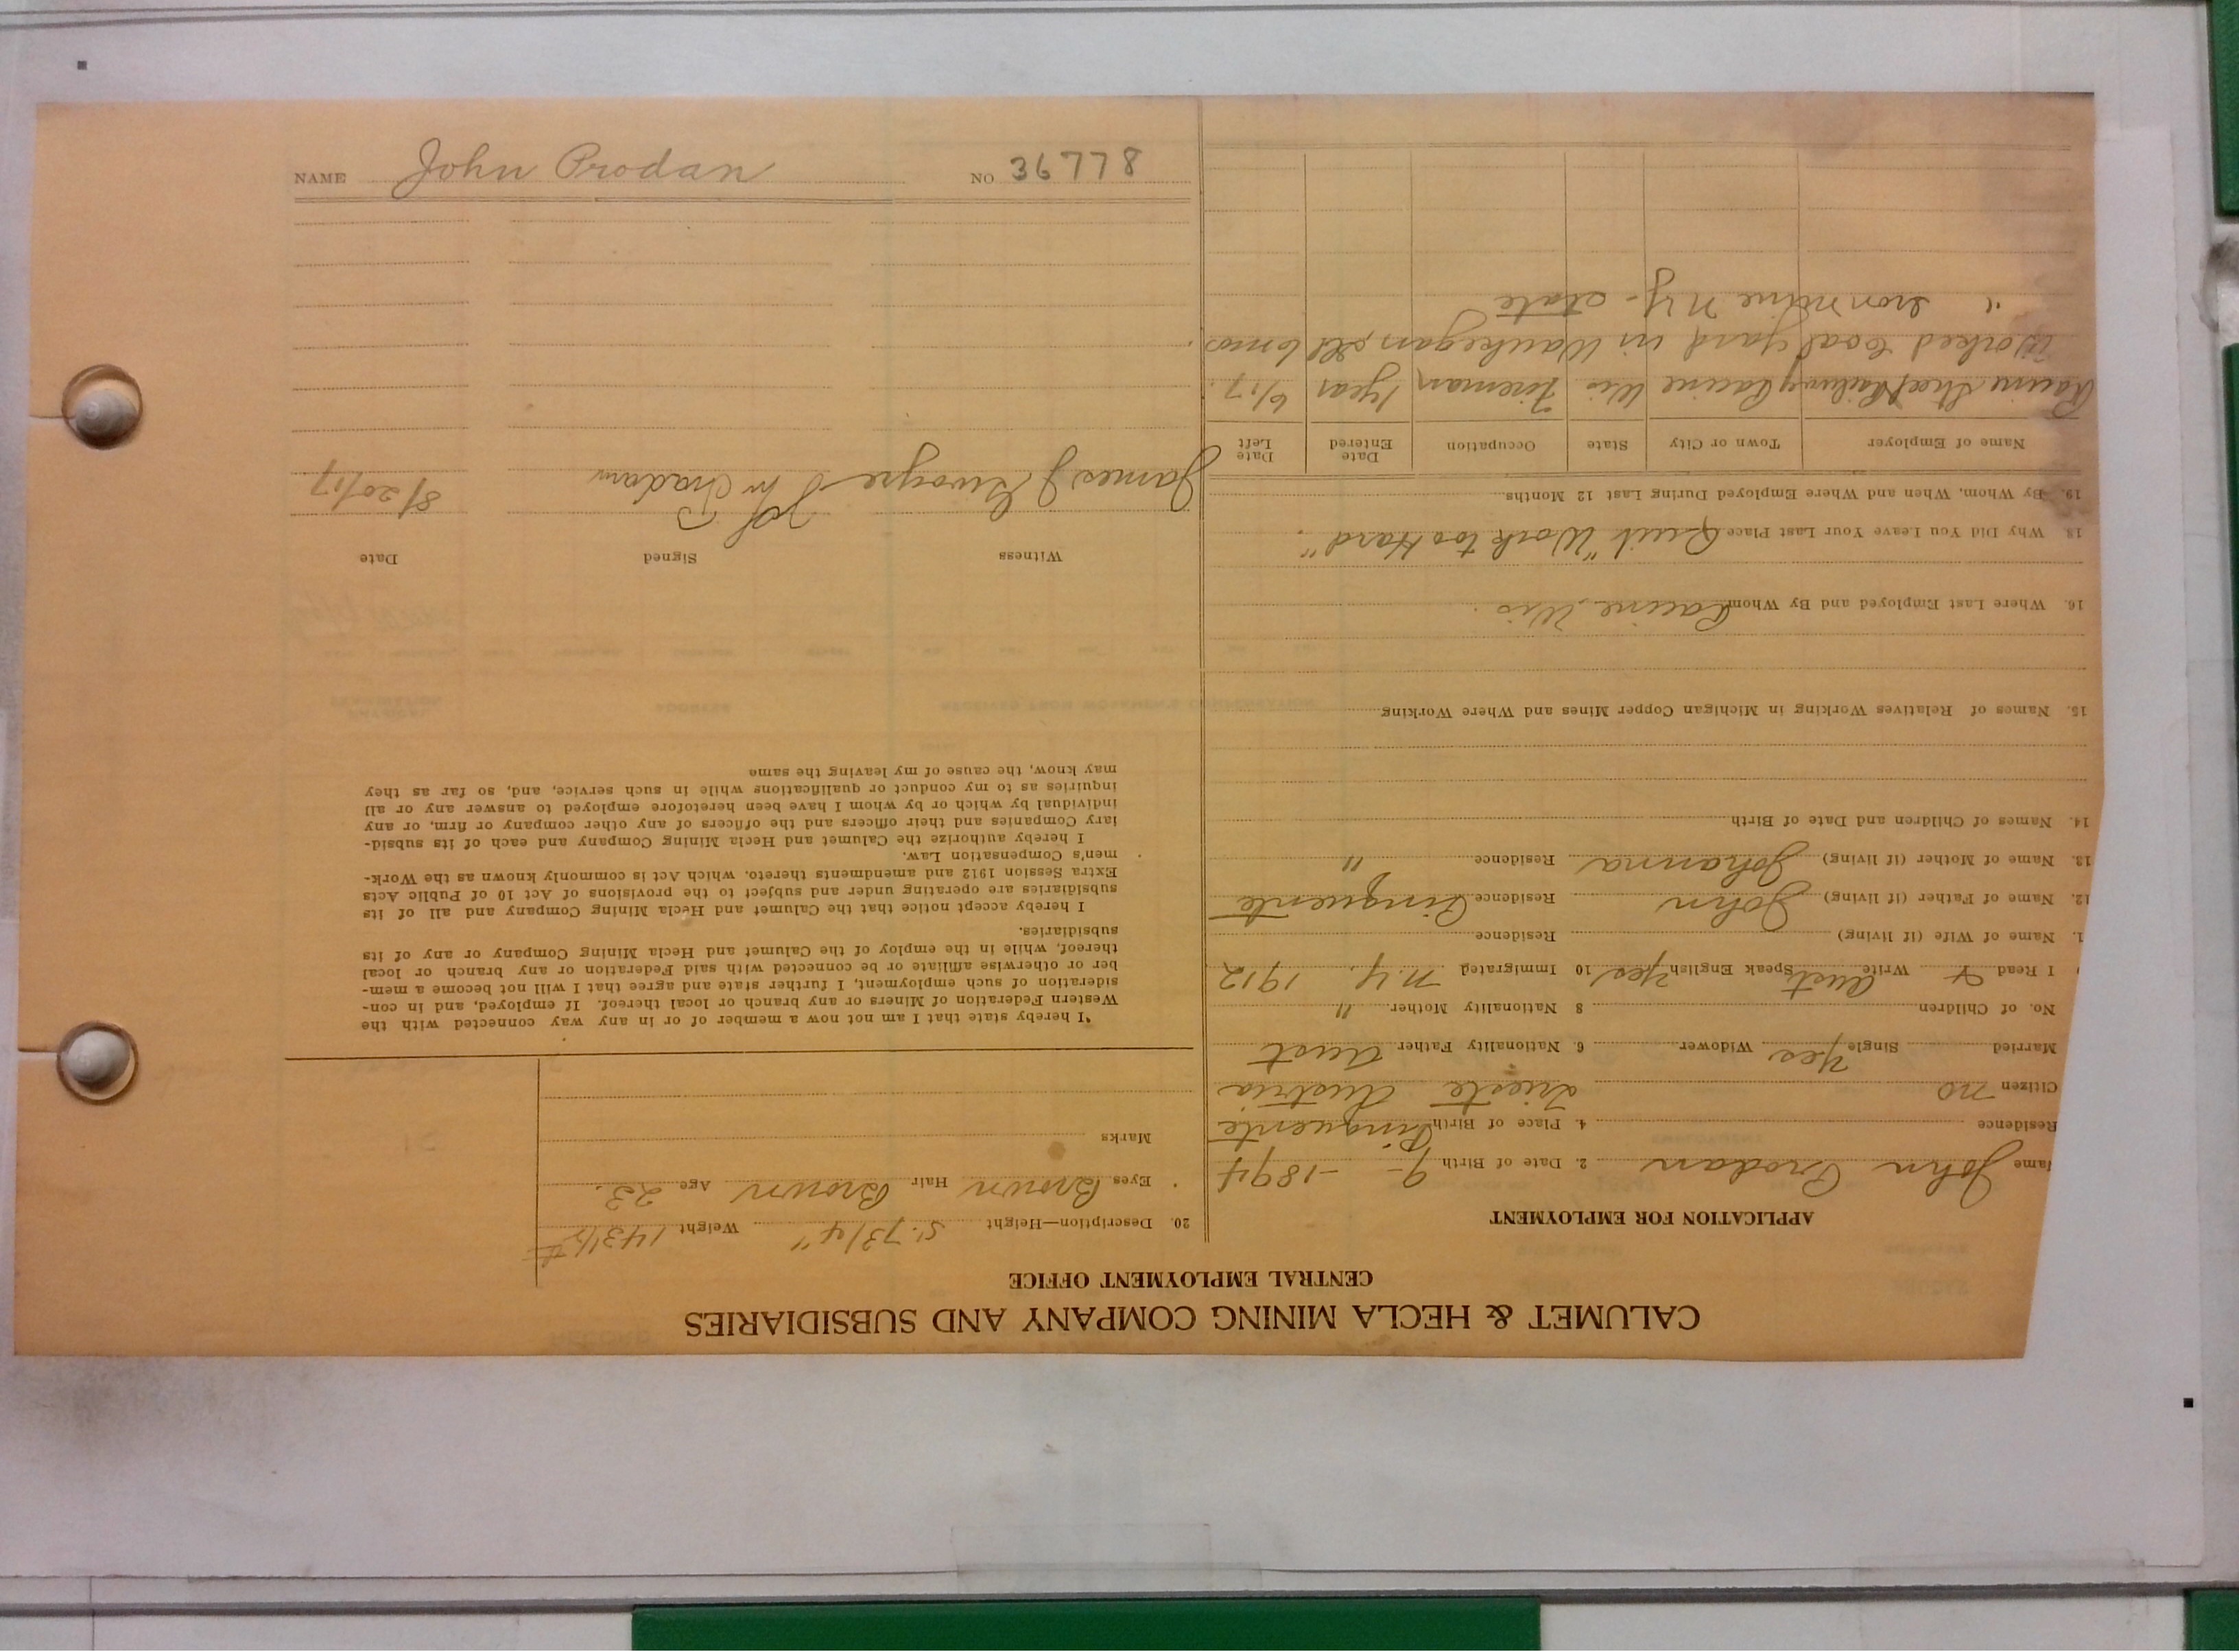 CALUMET & HECLA MINING COMPANY AND SUBSIDIARIES
CENTRAL EMPLOYMENT OFFICE
APPLICATION FOR EMPLOYMENT
ame John Prodan 2. Date of Birth 9- -1894
Residence 4. Place of Birth Pinquente
Citizen no Trieste Austria
Married Single Yes Widower 6. Nationality Father Aust
No. of Children 8 Nationality Mother "
I Read & Write Aust Speak English Yes 10 Immigrated N.Y. 1912
1. Name of Wife (if living) Residence
12. Name of Father (if living) John Residence Pinquente
13. Name of Mother (if living) Johanna Residence "
14. Names of Children and Date of Birth
15. Names of Relatives Working in Michigan Copper Mines and Where Working
16. Where Last Employed and By Whom Racine, Wis.
18. Why Did You Leave Your Last Place Quit "Work too Hard".
19. By Whom, When and Where Employed During Last 12 Months
Name of Employer Town or City State Occupation Date Entered Date Left
Racine Street Railway Racine Wis Fireman 1 year 6/17.
Worked Coal Yard in Waukegan, Ill 6 mos.
" Iron mine N.Y. State
20. Description—Height 5'. 7 3/4" Weight 143 1/2 #
Eyes Brown Hair Brown Age 23.
Marks
"I hereby state that I am not now a member of or in any way connected with the
Western Federation of Miners or any branch or local thereof. If employed, and in con-
sideration of such employment, I further state and agree that I will not become a mem-
ber or otherwise affiliate or be connected with said Federation or any branch or local
thereof, while in the employ of the Calumet and Hecla Mining Company or any of its
subsidiaries.
I hereby accept notice that the Calumet and Hecla Mining Company and all of its
subsidiaries are operating under and subject to the provisions of Act 10 of Public Acts
Extra Session 1912 and amendments thereto, which Act is commonly known as the Work-
men's Compensation Law.
I hereby authorize the Calumet and Hecla Mining Company and each of its subsid-
iary Companies and their officers and the officers of any other company or firm, or any
individual by which or by whom I have been heretofore employed to answer any or all
inquiries as to my conduct or qualifications while in such service, and, so far as they
may know, the cause of my leaving the same
Witness Signed Date
James J 8/20/17
NAME John Prodan NO 36778